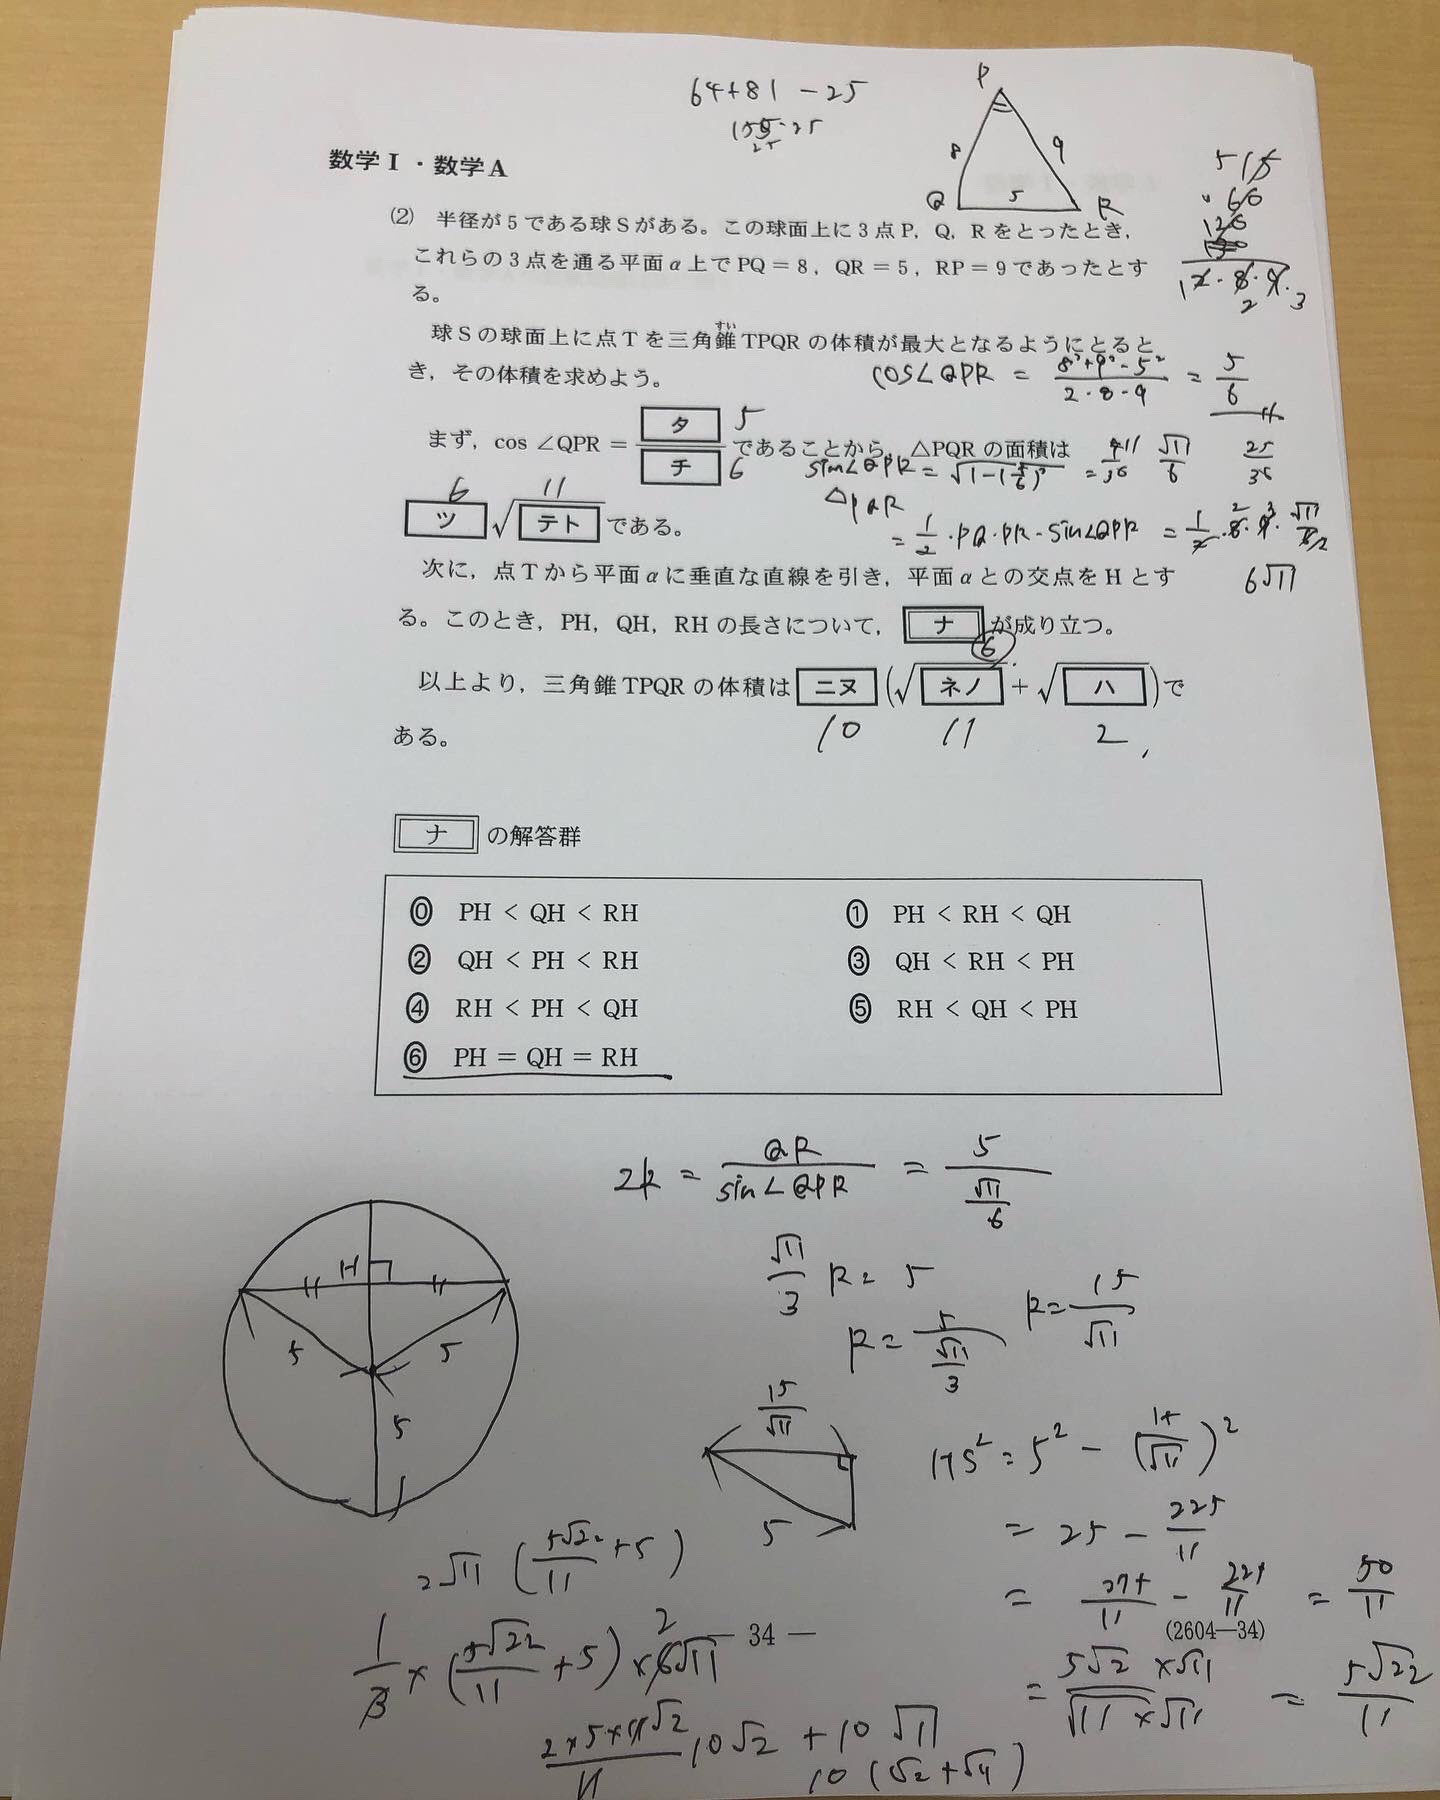 64+81-25
P
8
9
Q
5
R
数学Ⅰ・数学A
(2) 半径が5である球Sがある。この球面上に3点P, Q, Rをとったとき,
これらの3点を通る平面α上でPQ=8, QR=5, RP=9であったとす
る。
球Sの球面上に点Tを三角錐TPQRの体積が最大となるようにとると
すい
き, その体積を求めよう。
cos∠QPR = (8²+9²-5²)/(2・8・9) = 5/6
まず, cos∠QPR = タ/チ であることから, △PQRの面積は
5
6
sin∠QPR = √(1-(5/6)²) = 11/36 √11/6
25/36
6 11
ツ√テト である。
△PQR
= 1/2・PQ・PR・sin∠QPR = 1/2・8・9・√11/6
6√11
次に, 点Tから平面αに垂直な直線を引き, 平面αとの交点をHとす
る。このとき, PH, QH, RHの長さについて, ナ が成り立つ。
⑥
以上より, 三角錐TPQRの体積は ニヌ (√ネノ + √ハ) で
10 11 2
ある。
ナ の解答群
⓪ PH < QH < RH
① PH < RH < QH
② QH < PH < RH
③ QH < RH < PH
④ RH < PH < QH
⑤ RH < QH < PH
⑥ PH = QH = RH
2R = QR/sin∠QPR = 5/(√11/6)
√11/3 R = 5
R = 5/(√11/3) R = 15/√11
H
5 5
5
15/√11
5
HS² = 5² - (15/√11)²
= 25 - 225/11
= 275/11 - 225/11 = 50/11
= (5√2×√11)/(√11×√11) = 5√22/11
2√11 (5√22/11 + 5)
1/3 × (5√22/11 + 5) × 6√11
2
— 34 —
(2604—34)
(2×5×11√2)/11 10√2 + 10√11
10 (√2+√11)